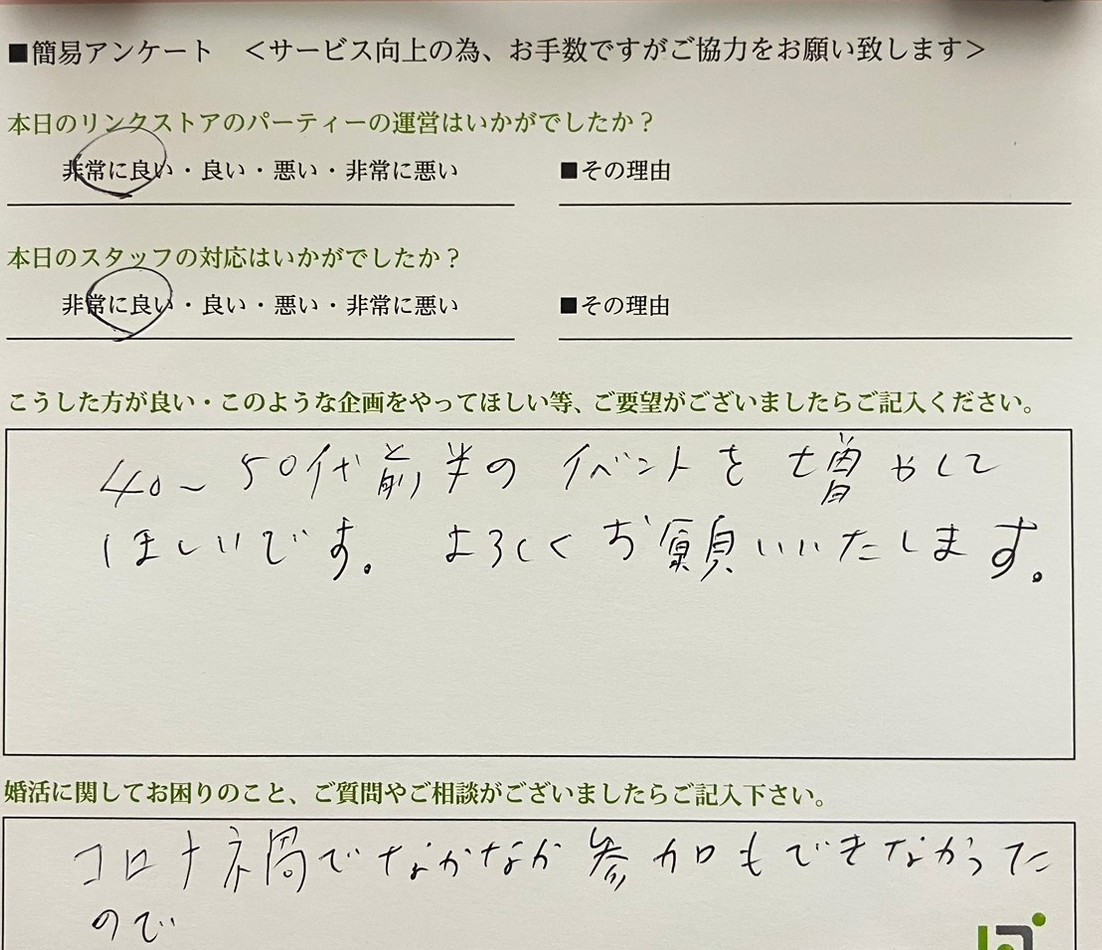 ■簡易アンケート　＜サービス向上の為、お手数ですがご協力をお願い致します＞
本日のリンクストアのパーティーの運営はいかがでしたか？
非常に良い・良い・悪い・非常に悪い　■その理由
本日のスタッフの対応はいかがでしたか？
非常に良い・良い・悪い・非常に悪い　■その理由
こうした方が良い・このような企画をやってほしい等、ご要望がございましたらご記入ください。
40～50代前半の イベントを 増やして
ほしいです。 よろしく お願いいたします。
婚活に関してお困りのこと、ご質問やご相談がございましたらご記入下さい。
コロナ禍でなかなか参加もできなかった
ので